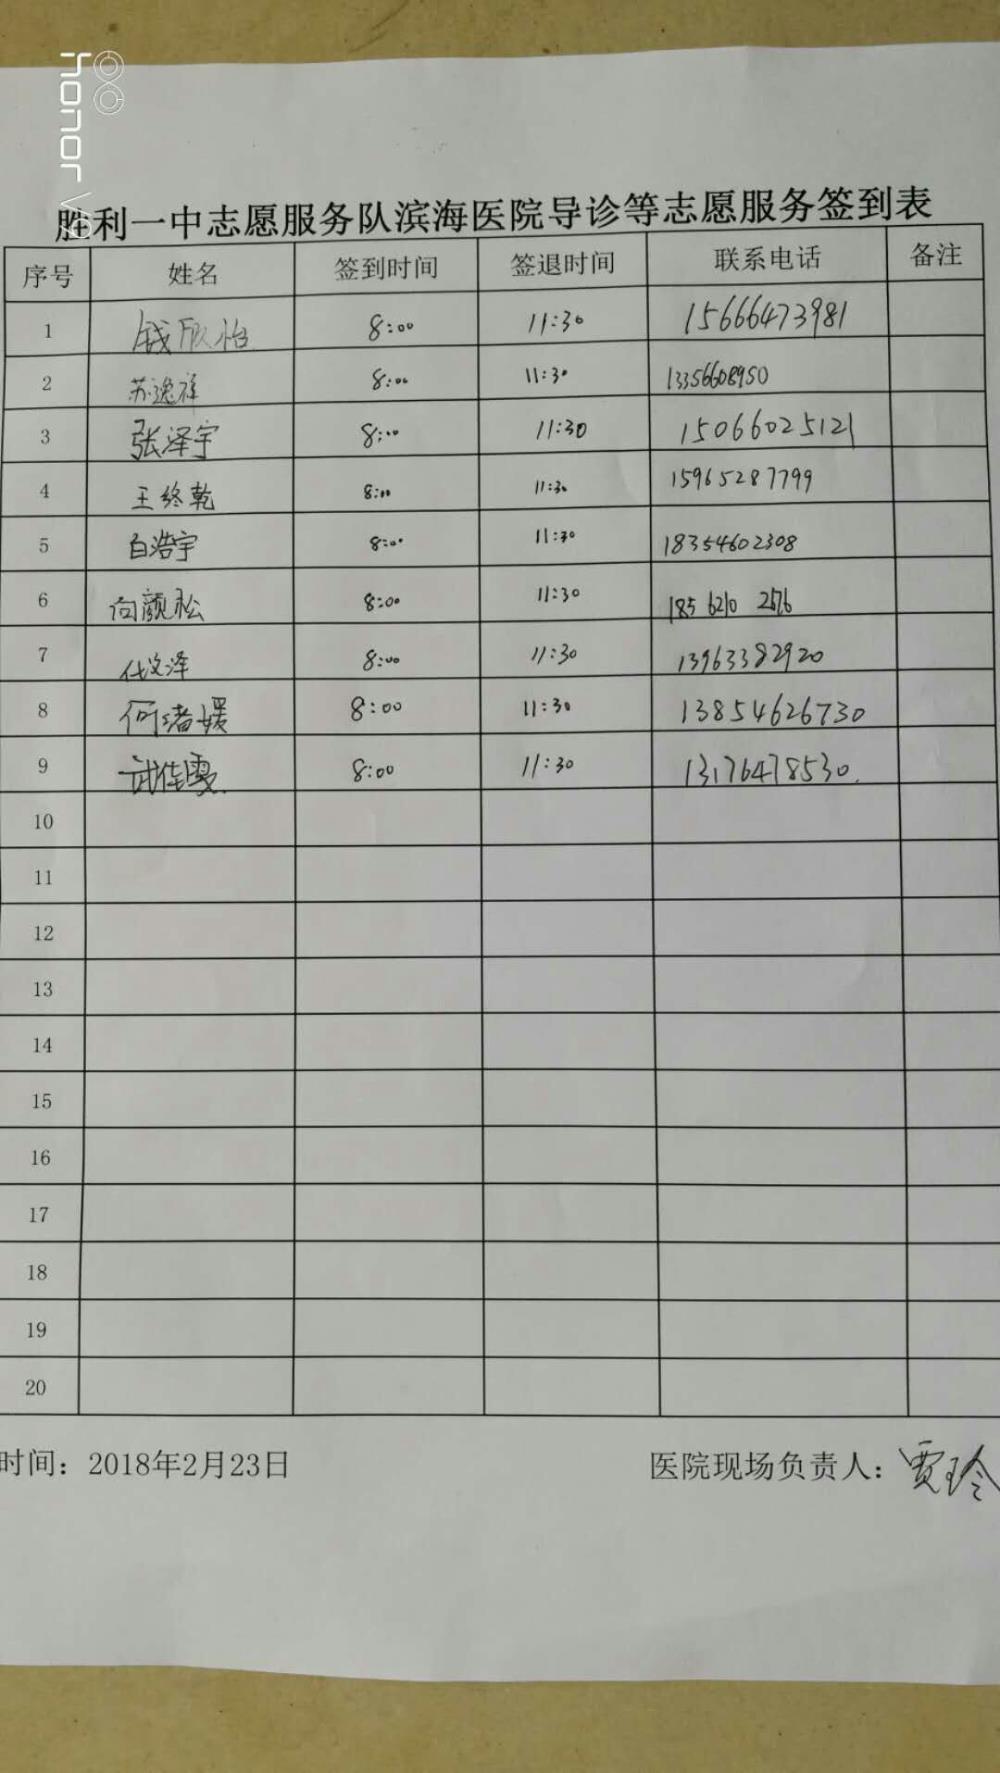 honor V9
胜利一中志愿服务队滨海医院导诊等志愿服务签到表
序号 姓名 签到时间 签退时间 联系电话 备注
1 钱欣怡 8:00 11:30 15666473981
2 苏逸祥 8:00 11:30 13356608950
3 张泽宇 8:00 11:30 15066025121
4 王终乾 8:00 11:30 15965287799
5 白浩宇 8:00 11:30 18354602308
6 向颜松 8:00 11:30 185 6210
7 代文泽 8:00 11:30 13963382920
8 何渚媛 8:00 11:30 13854626730
9 武佳雯 8:00 11:30 13176478530.
10
11
12
13
14
15
16
17
18
19
20
时间：2018年2月23日 医院现场负责人：贾玲